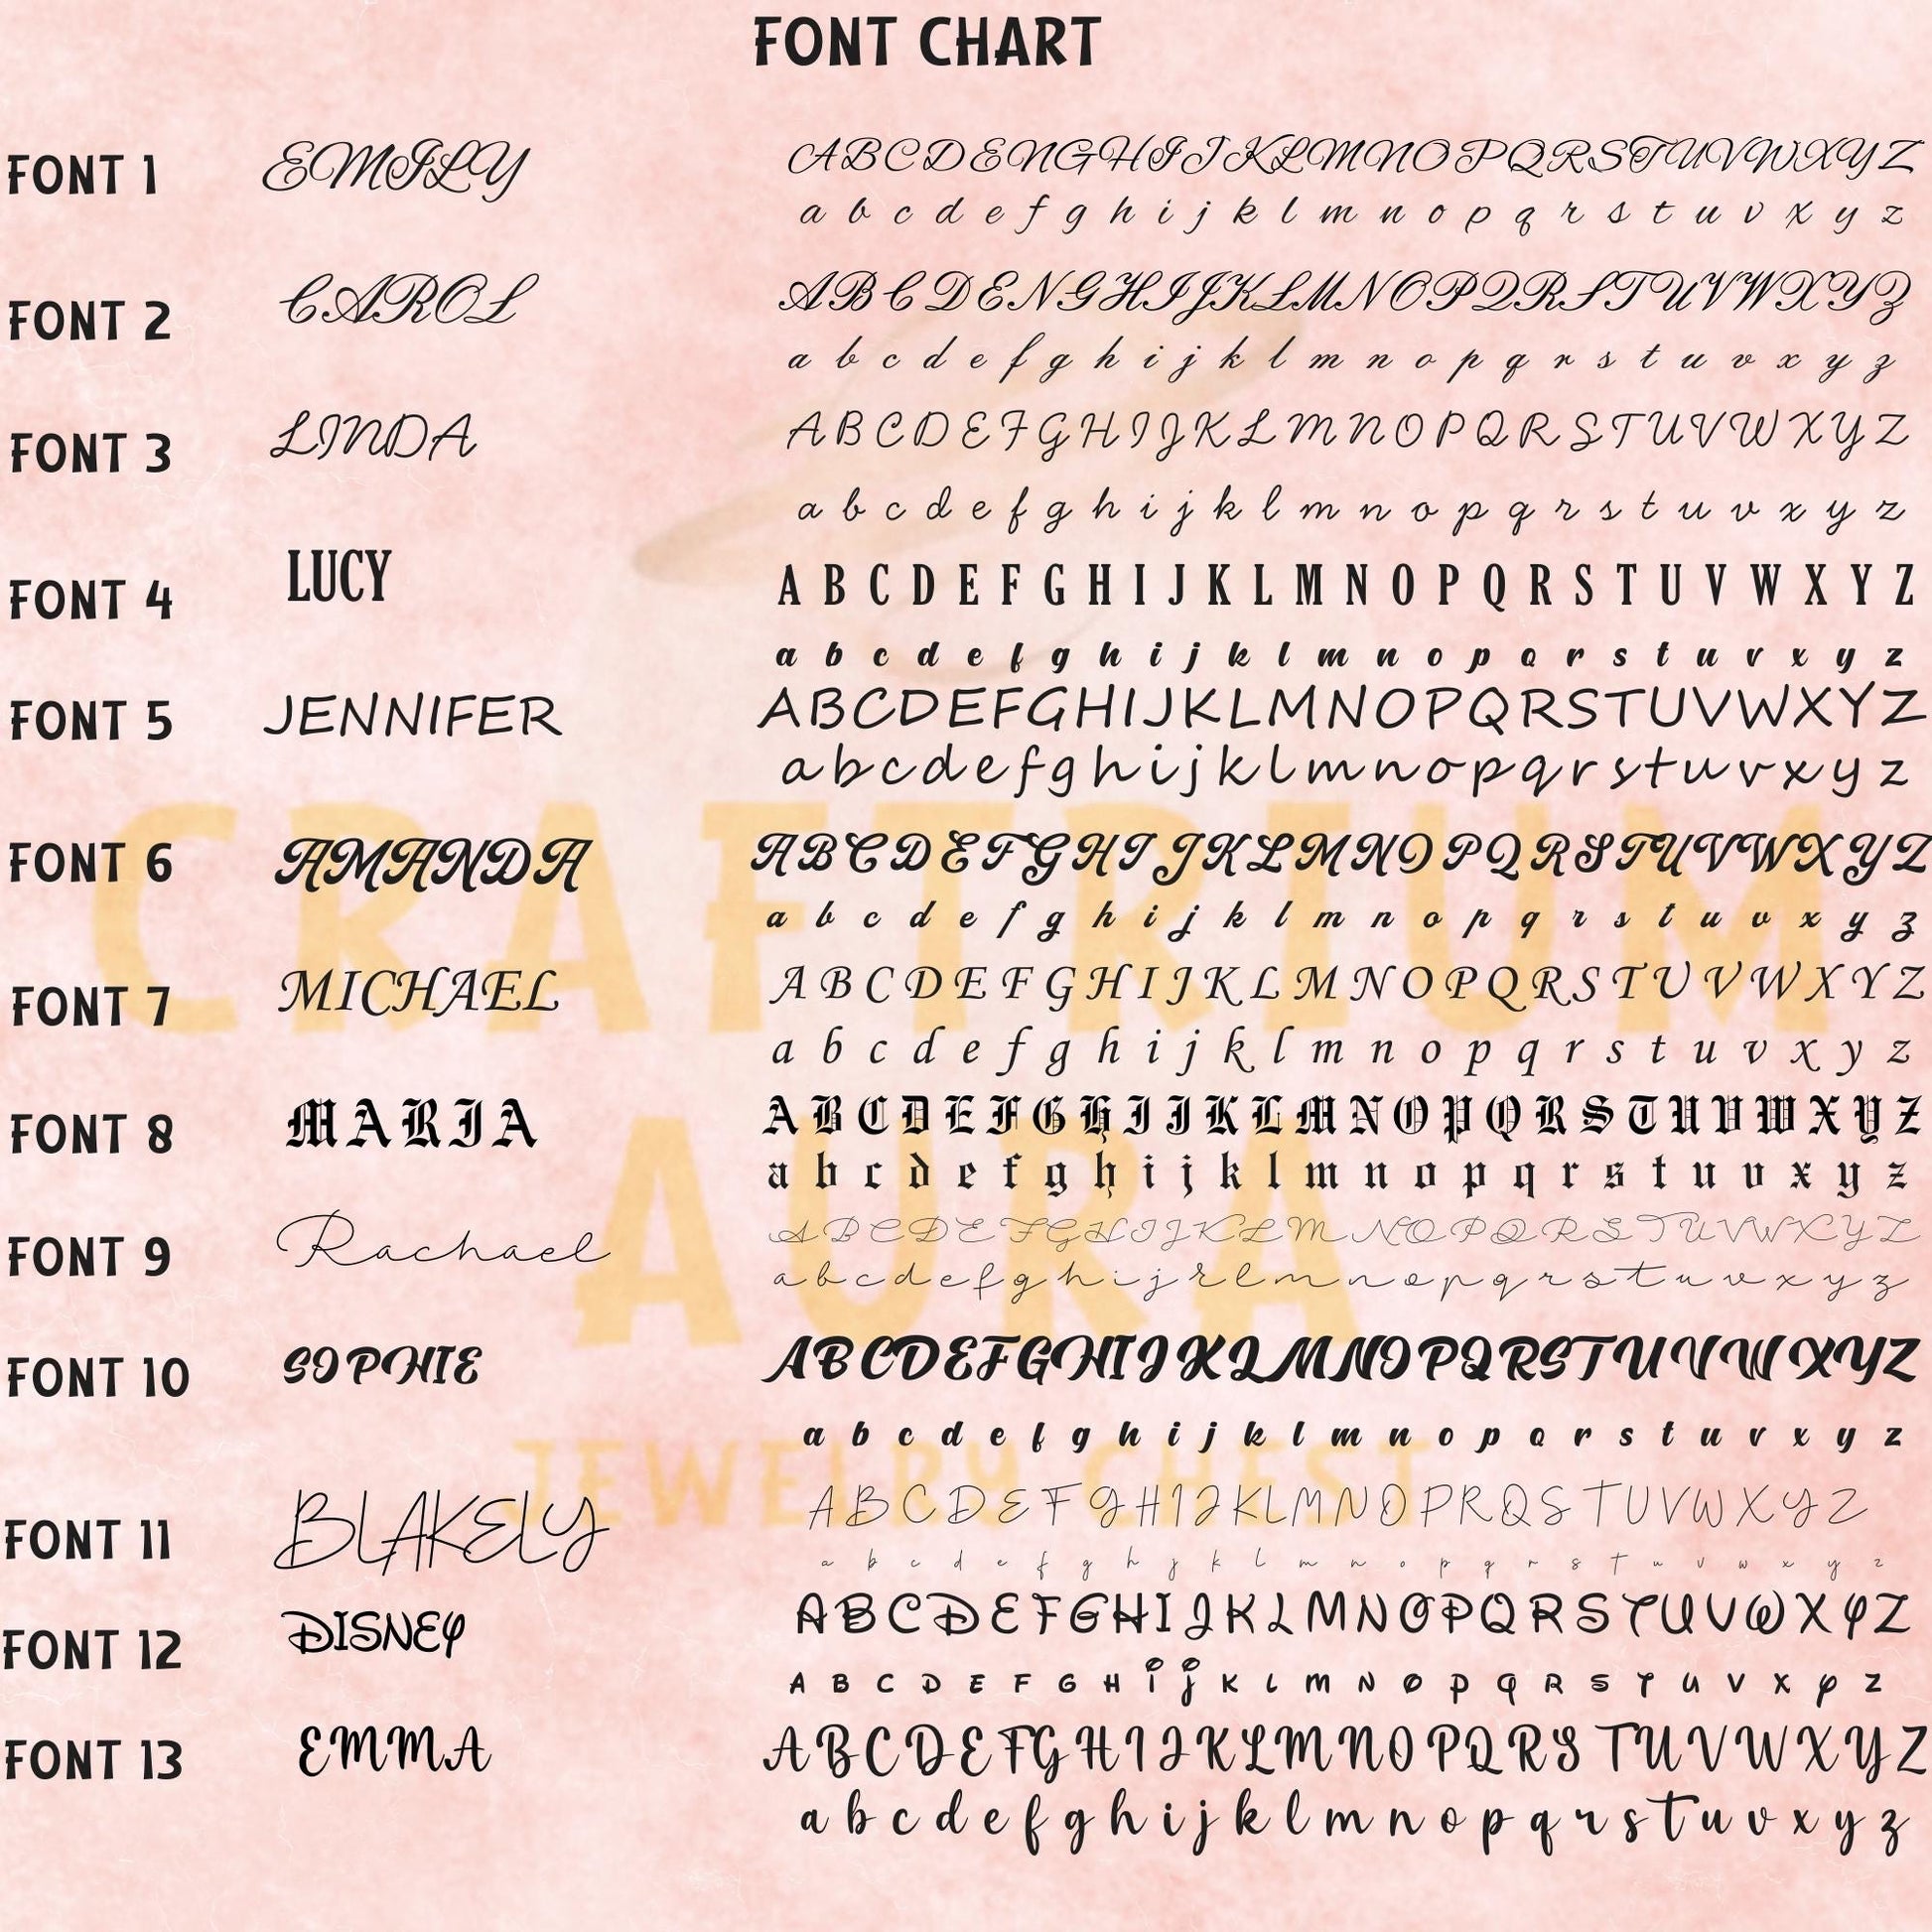 FONT CHART
FONT 1 EMILY ABCDENGHIJKLMNOPQRSTUVWXYZ
a b c d e f g h i j k l m n o p q r s t u v x y z
FONT 2 CAROL ABCDENGHIJKLMNOPQRSTUVWXYZ
a b c d e f g h i j k l m n o p q r s t u v x y z
FONT 3 LINDA ABCDEFGHIJKLMNOPQRSTUVWXYZ
a b c d e f g h i j k l m n o p q r s t u v x y z
FONT 4 LUCY A B C D E F G H I J K L M N O P Q R S T U V W X Y Z
a b c d e f g h i j k l m n o p q r s t u v x y z
FONT 5 JENNIFER ABCDEFGHIJKLMNOPQRSTUVWXYZ
a b c d e f g h i j k l m n o p q r s t u v x y z
CRAFTRIUM
FONT 6 AMANDA ABCDEFGHIJKLMNOPQRSTUVWXYZ
a b c d e f g h i j k l m n o p q r s t u v x y z
FONT 7 MICHAEL A B C D E F G H I J K L M N O P Q R S T U V W X Y Z
a b c d e f g h i j k l m n o p q r s t u v x y z
AURA
FONT 8 MARIA A B C D E F G H I J K L M N O P Q R S T U V W X Y Z
a b c d e f g h i j k l m n o p q r s t u v x y z
FONT 9 Rachael ABCDEFGHIJKLMNOPQRSTUVWXYZ
a b c d e f g h i j k l m n o p q r s t u v x y z
FONT 10 SOPHIE ABCDEFGHIJKLMNOPQRSTUVWXYZ
a b c d e f g h i j k l m n o p q r s t u v x y z
JEWELRY CHEST
FONT 11 BLAKELY A B C D E F G H I J K L M N O P R Q S T U V W X Y Z
a b c d e f g h j k l m n o p q r s t u v w x y z
FONT 12 DISNEY A B C D E F G H I J K L M N O P Q R S T U V W X Y Z
A B C D E F G H i j K L M N O P Q R S T U V X Y Z
FONT 13 EMMA A B C D E F G H I J K L M N O P Q R S T U V W X Y Z
a b c d e f g h i j k l m n o p q r s t u v x y z